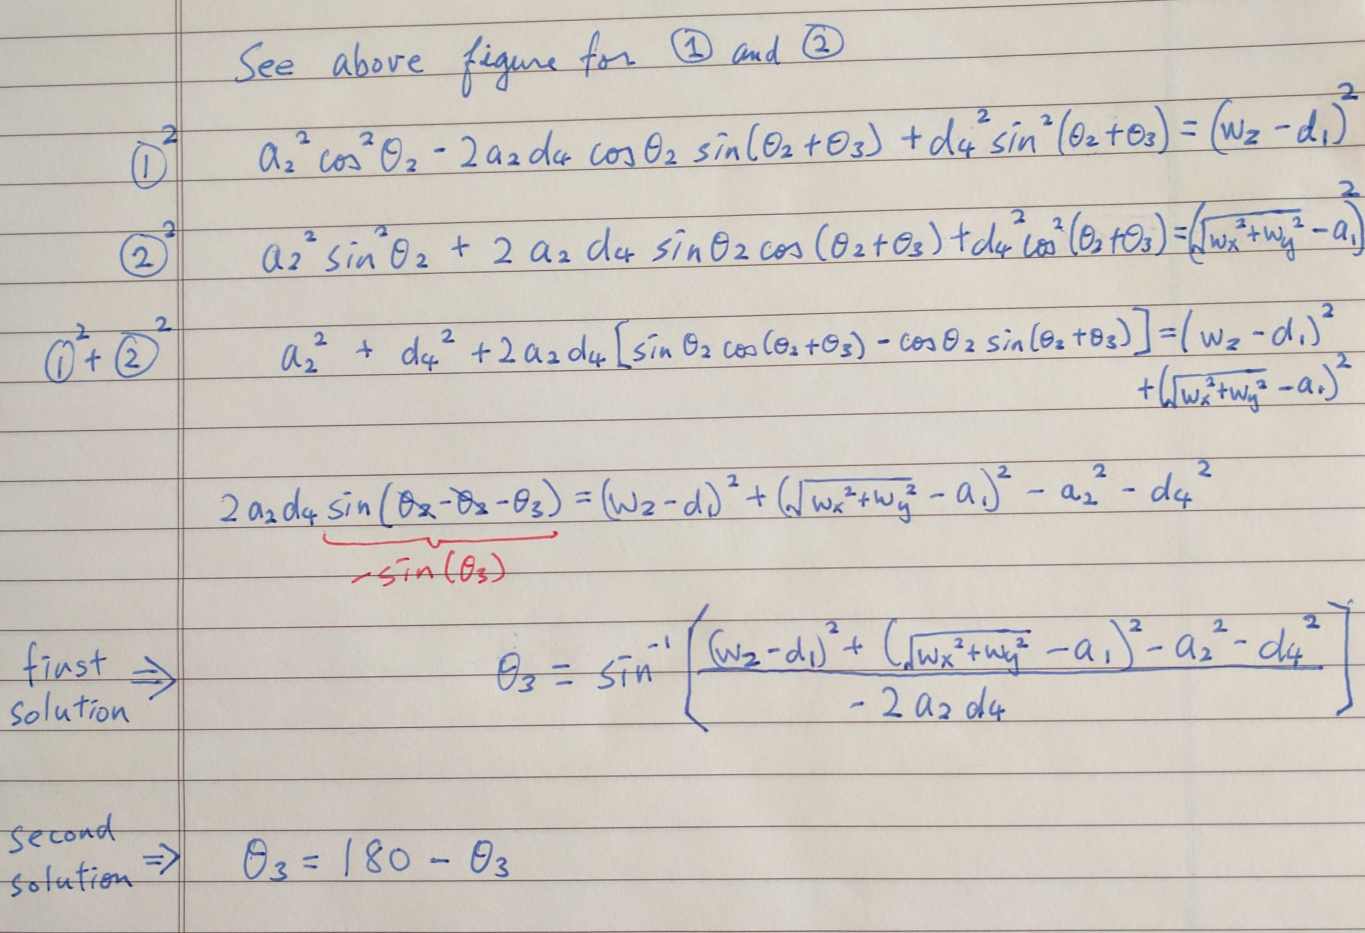 See above figure for ① and ②
①² a₂² cos²θ₂ - 2a₂d₄ cosθ₂ sin(θ₂+θ₃) + d₄² sin²(θ₂+θ₃) = (w_z - d₁)²
②² a₂² sin²θ₂ + 2a₂d₄ sinθ₂ cos(θ₂+θ₃) + d₄² cos²(θ₂+θ₃) = (√(w_x²+w_y²) - a₁)²
①² + ②² a₂² + d₄² + 2a₂d₄ [sinθ₂ cos(θ₂+θ₃) - cosθ₂ sin(θ₂+θ₃)] = (w_z - d₁)²
+ (√(w_x²+w_y²) - a₁)²
2a₂d₄ sin(θ₂-θ₂-θ₃) = (w_z - d₁)² + (√(w_x²+w_y²) - a₁)² - a₂² - d₄²
-sin(θ₃)
first solution ⇒ θ₃ = sin⁻¹ [((w_z - d₁)² + (√(w_x²+w_y²) - a₁)² - a₂² - d₄²) / (-2a₂d₄)]
second solution ⇒ θ₃ = 180 - θ₃